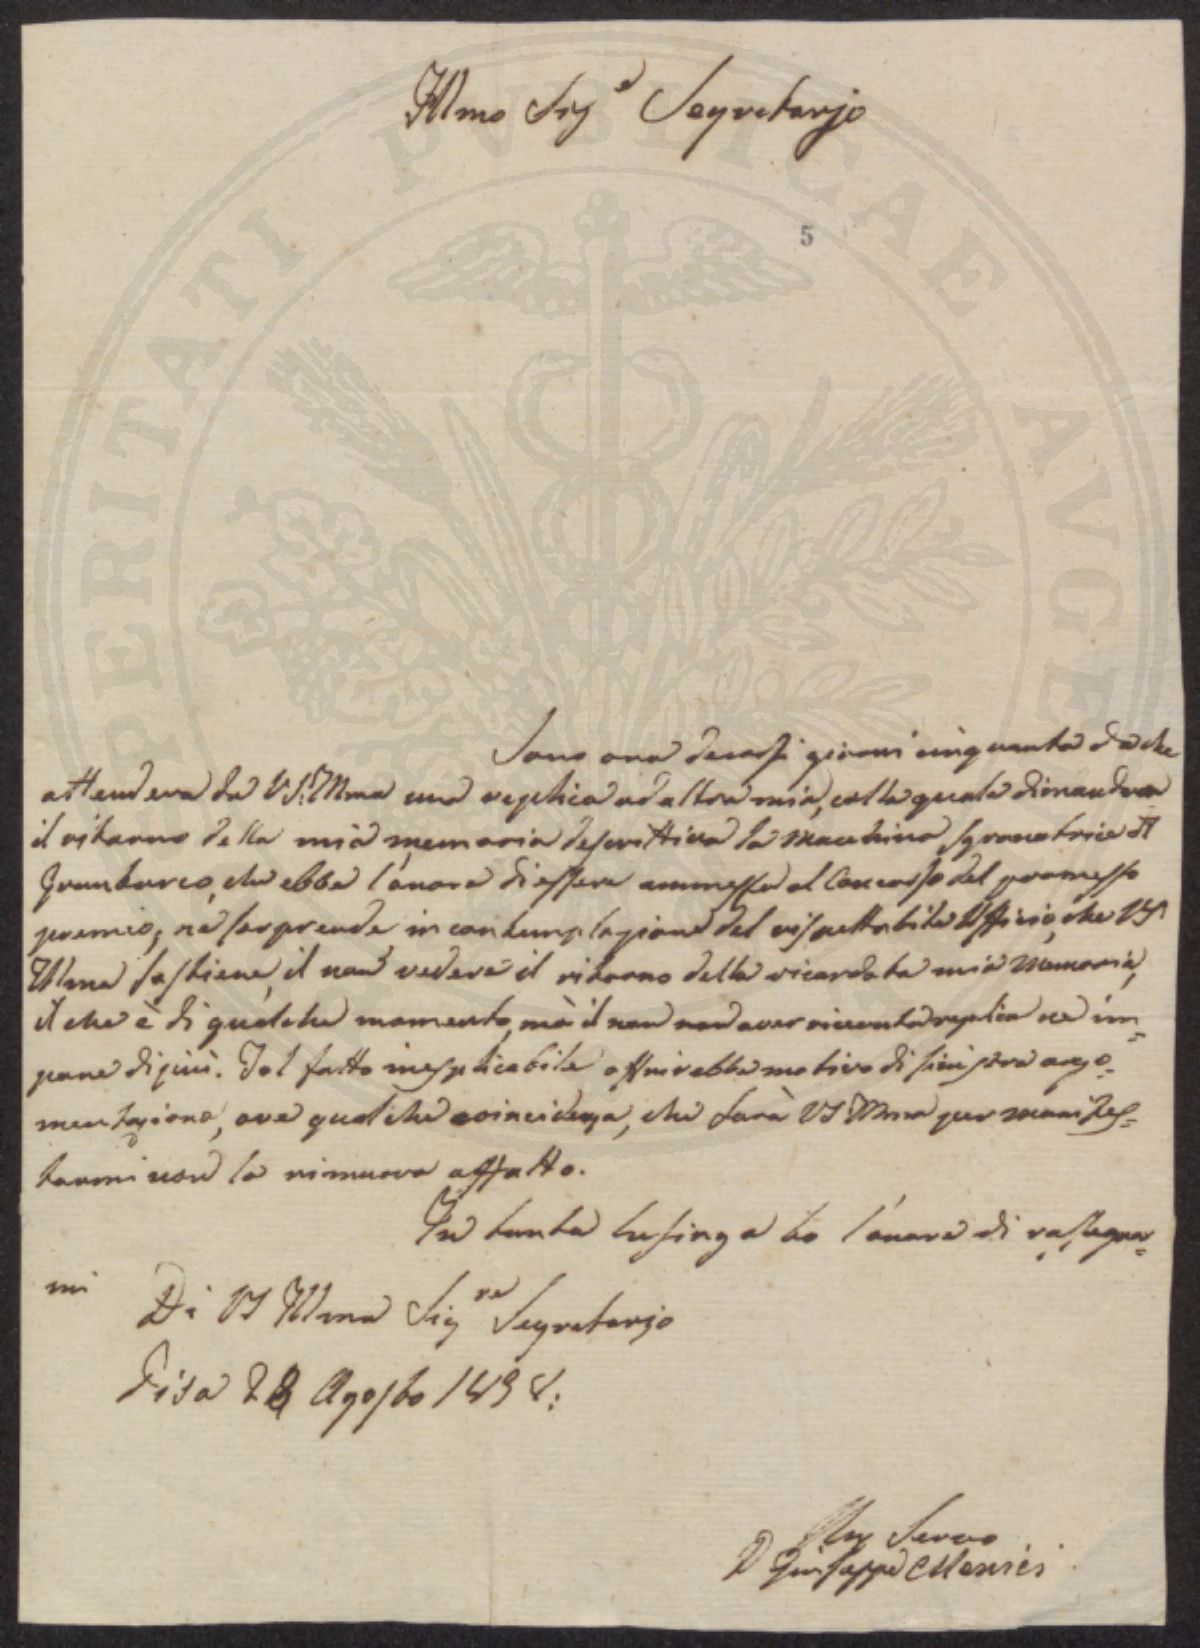 Illmo Sig.e Segretarjo
5
Sono ora decorsi giorni cinquanta da che
attendeva da VS: Illma una replica ad altra mia, colla quale dimandava
il ritorno della mia memoria descrittiva la Macchina sgranatrice il
Granturco, che ebbe l'onore di essere ammessa al Concorso del promesso
premio; nè sorprende in contemplazione del rispettabile Uffizio, che VS
Illma sostiene, il non vedere il ritorno della ricordata mia Memoria,
il che è di qualche momento, mà il non aver ricevuta replica ne im=
pone di più. Tal fatto inesplicabile offrirebbe motivo di sinistra argo=
mentazione, ove qualche coincidenza, che farà VS Illma per manifes=
tarmi non la rimuova affatto.
In tanta lusinga ho l'onore di rassegnar=
mi
Di VS Illma Sig.re Segretarjo
Pisa 28 Agosto 1838:
Servo
D Giuseppe Menici
PERITATI PVBLICAE AVGE